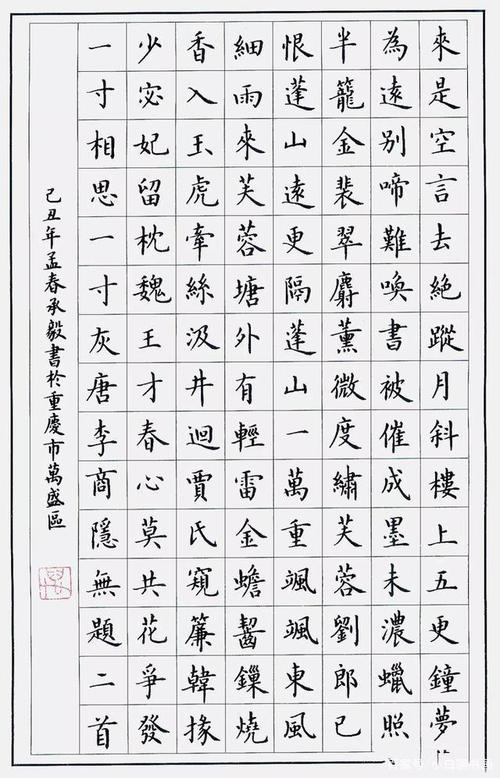 來是空言去絶蹤月斜樓上五更鐘夢
為遠別啼難喚書被催成墨未濃蠟照
半籠金裴翠麝薰微度繡芙蓉劉郎已
恨蓬山遠更隔蓬山一萬重颯颯東風
細雨來芙蓉塘外有輕雷金蟾齧鏁燒
香入玉虎牽絲汲井迴賈氏窺簾韓掾
少宓妃留枕魏王才春心莫共花爭發
一寸相思一寸灰唐李商隱無題二首
己丑年孟春承毅書於重慶市萬盛區